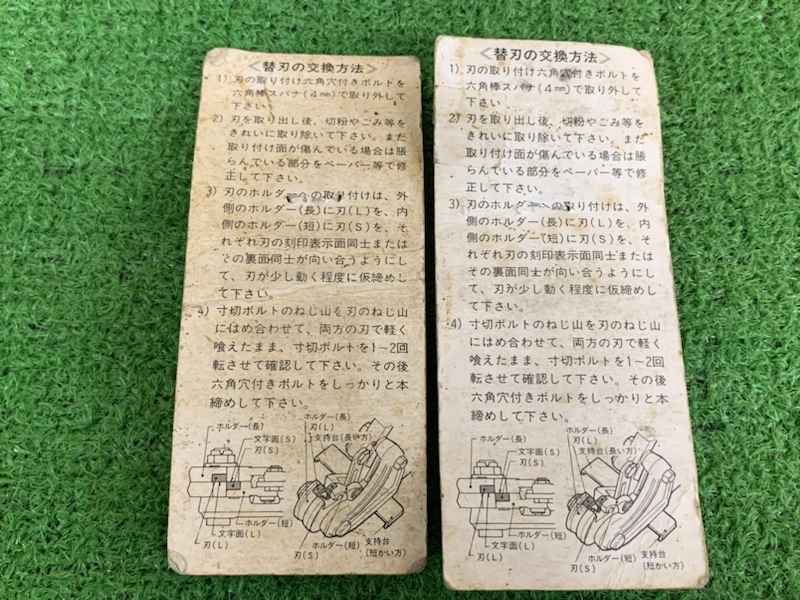 ＜替刃の交換方法＞
1) 刃の取り付け六角穴付きボルトを
六角棒スパナ(4㎜)で取り外して
下さい
2) 刃を取り出し後、切粉やごみ等を
きれいに取り除いて下さい。また
取り付け面が傷んでいる場合は脹
らんでいる部分をペーパー等で修
正して下さい。
3) 刃のホルダーへの取り付けは、外
側のホルダー(長)に刃(L)を、内
側のホルダー(短)に刃(S)を、そ
れぞれ刃の刻印表示面同士または
その裏面同士が向い合うようにし
て、刃が少し動く程度に仮締めし
て下さい。
4) 寸切ボルトのねじ山を刃のねじ山
にはめ合わせて、両方の刃で軽く
喰えたまま、寸切ボルトを1～2回
転させて確認して下さい。その後
六角穴付きボルトをしっかりと本
締めして下さい。
ホルダー(長)
文字面(S)
刃(S)
ホルダー(短)
文字面(L)
刃(L)
ホルダー(長)
刃(L)
支持台(長い方)
ホルダー(短)
刃(S)
支持台
(短かい方)
＜替刃の交換方法＞
1) 刃の取り付け六角穴付きボルトを
六角棒スパナ(4㎜)で取り外して
下さい
2) 刃を取り出し後、切粉やごみ等を
きれいに取り除いて下さい。また
取り付け面が傷んでいる場合は脹
らんでいる部分をペーパー等で修
正して下さい。
3) 刃のホルダーへの取り付けは、外
側のホルダー(長)に刃(L)を、内
側のホルダー(短)に刃(S)を、そ
れぞれ刃の刻印表示面同士または
その裏面同士が向い合うようにし
て、刃が少し動く程度に仮締めし
て下さい。
4) 寸切ボルトのねじ山を刃のねじ山
にはめ合わせて、両方の刃で軽く
喰えたまま、寸切ボルトを1～2回
転させて確認して下さい。その後
六角穴付きボルトをしっかりと本
締めして下さい。
ホルダー(長)
文字面(S)
刃(S)
ホルダー(短)
文字面(L)
刃(L)
ホルダー(長)
刃(L)
支持台(長い方)
ホルダー(短)
刃(S)
支持台
(短かい方)